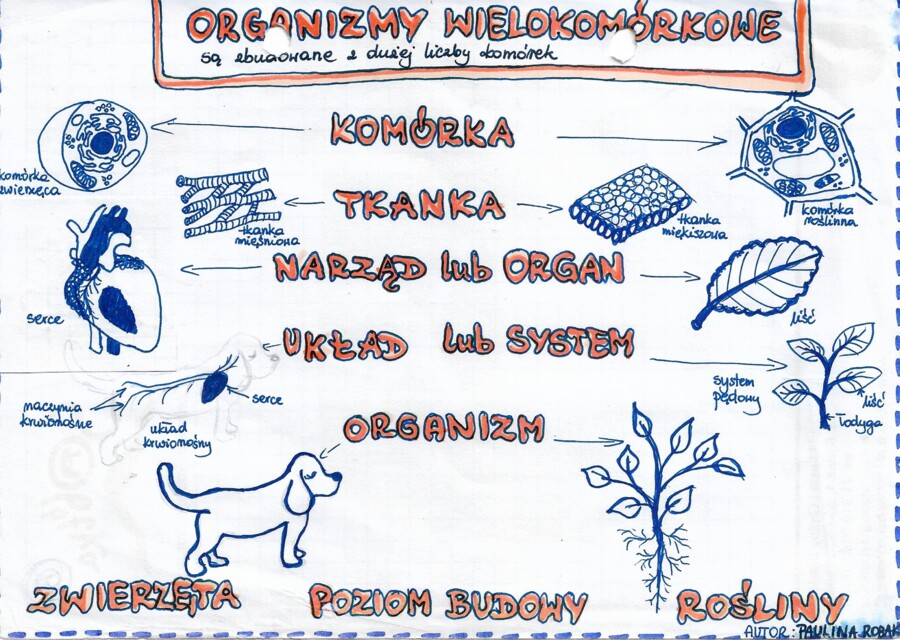 ORGANIZMY WIELOKOMÓRKOWE
są zbudowane z dużej liczby komórek
KOMÓRKA
komórka
zwierzęca
komórka
roślinna
TKANKA
tkanka
mięśniowa
tkanka
miękiszowa
NARZĄD lub ORGAN
serce
liść
UKŁAD lub SYSTEM
naczynia
krwionośne
serce
układ
krwionośny
system
pędowy
liść
łodyga
ORGANIZM
ZWIERZĘTA
POZIOM BUDOWY
ROŚLINY
AUTOR: PAULINA ROBAK